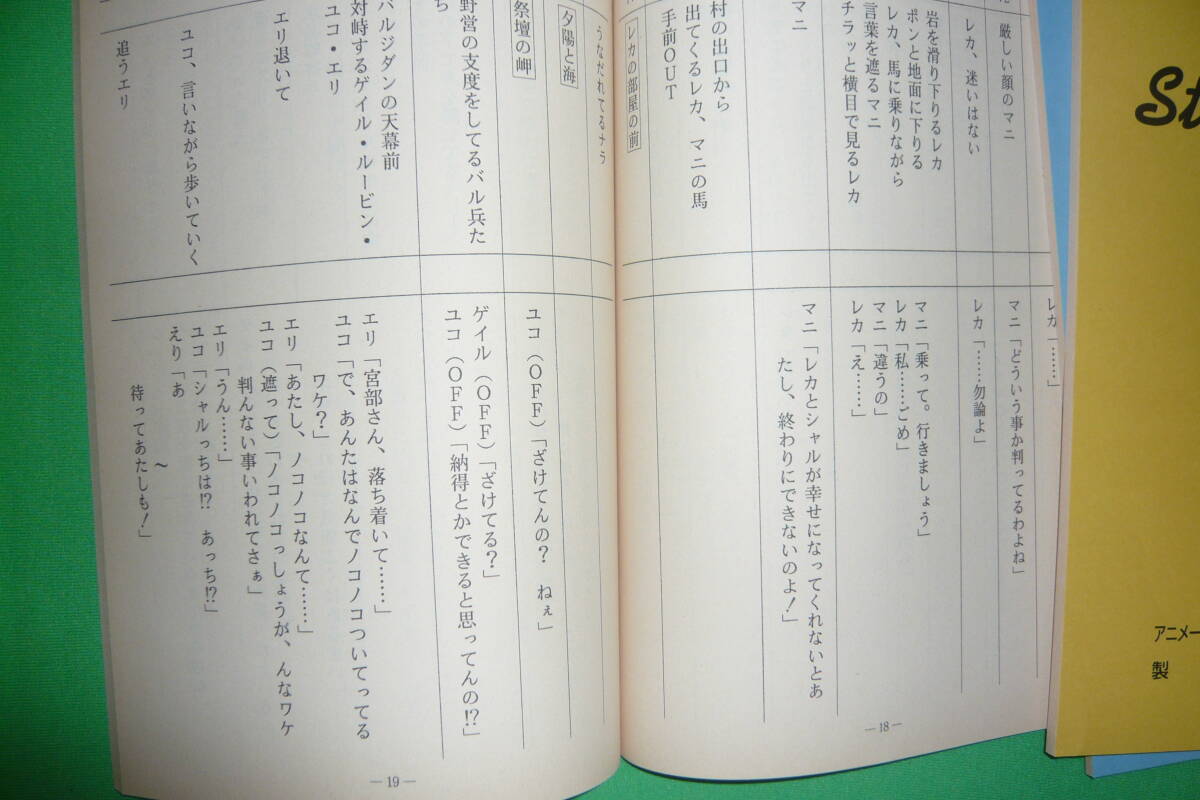 厳しい顔のマニ
レカ、迷いはない
岩を滑り下りるレカ
ポンと地面に下りる
レカ、馬に乗りながら
言葉を遮るマニ
チラッと横目で見るレカ
マニ
村の出口から
出てくるレカ、マニの馬
手前OUT
レカの部屋の前
レカ「……」
マニ「どういう事か判ってるわよね」
レカ「……勿論よ」
マニ「乗って。行きましょう」
レカ「私……ごめ」
マニ「違うの」
レカ「え……」
マニ「レカとシャルが幸せになってくれないとあ
たし、終わりにできないのよ!」
—18—
うなだれてるナラ
夕陽と海
祭壇の岬
野営の支度をしてるバル兵た
ち
バルジダンの天幕前
対峙するゲイル・ルービン・
ユコ・エリ
エリ退いて
ユコ、言いながら歩いていく
追うエリ
ユコ(OFF)「ざけてんの? ねぇ」
ゲイル(OFF)「ざけてる?」
ユコ(OFF)「納得とかできると思ってんの!?」
エリ「宮部さん、落ち着いて……」
ユコ「で、あんたはなんでノコノコついてってる
ワケ?」
エリ「あたし、ノコノコなんて……」
ユコ(遮って)「ノコノコっしょうが、んなワケ
判んない事いわれてさぁ」
エリ「うん……」
ユコ「シャルっちは!? あっち!?」
えり「あ
〜
待ってあたしも!」
—19—
St
アニメー
製